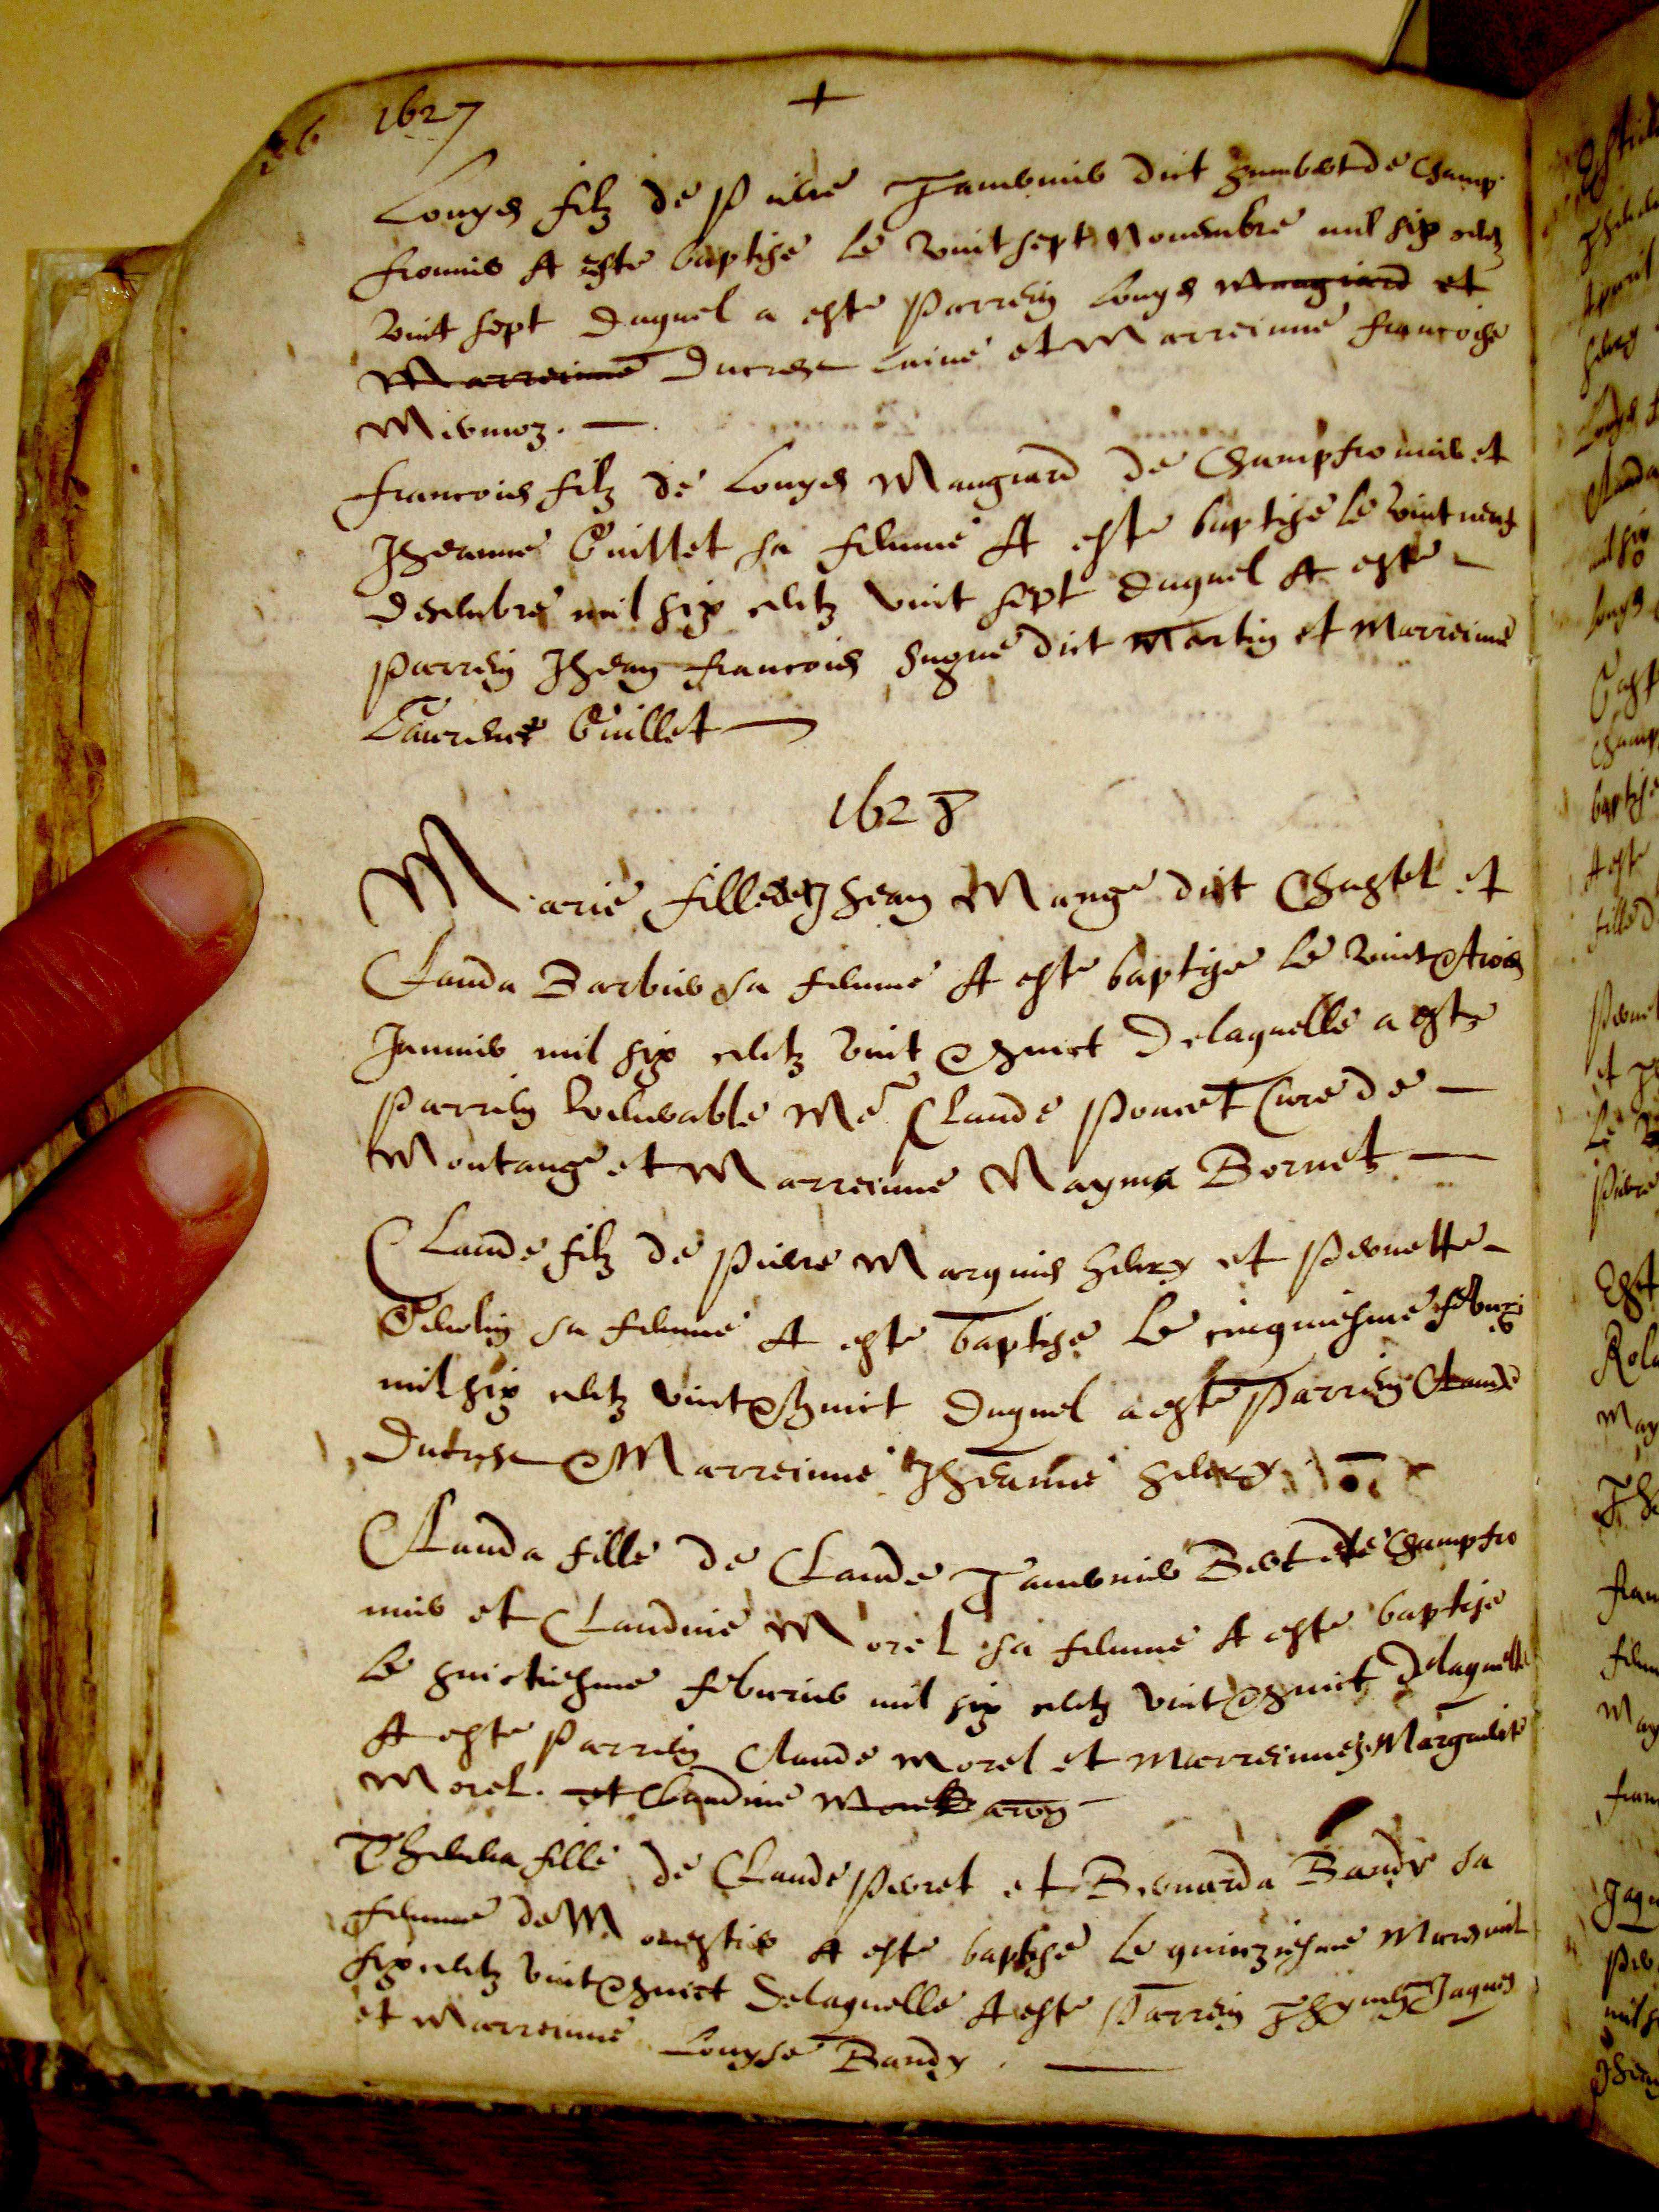 1627 +
Louys filz de Pierre Tavernier dict Humbert de Champ
fromier A este baptise le vint sept Novembre mil six centz
vint sept Duquel a este Parrein Louys Maugiard et
Marreinne Ducrest laine et Marreinne Francoise
Mermoz. —
Francois filz de Louys Maugiard de Champfromier et
Jheanne Guillet sa femme A este baptise le vint neuf
Decembre mil six centz vint sept Duquel A este
Parrein Jhean Francois Hugue dict Martin et Marreinne
Laurence Guillet —
1628
Marie fille de Jhean Mange dict Chastel et
Clauda Barbier sa femme A este baptise le vint & trois
Janvier mil six centz vint & huict Delaquelle a este
Parrein Venerable Me Claude Poncet Cure de
Montange et Marreinne Mayma Bornet —
Claude filz de Pierre Marquis Henry et Pernette
Genolin sa femme A este baptise le cinquiesme febvrier
mil six centz vint & huict Duquel a este Parrein Claude
Ducrest & Marreinne Jheanne Henry
Clauda fille de Claude Tavernier Bert de Champfro
mier et Claudine Morel sa femme A este baptise
le huictiesme febvrier mil six centz vint & huict Delaquelle
A este Parrein Claude Morel et Marreinne Marguerite
Morel. et Claudine Morel
fille de Claude Perret et Bernarda Baudy sa
femme de Monestier A este baptise le quinziesme Mars mil
six centz vint & huict Delaquelle A este Parrein Jaques
et Marreinne Louyse Baudy. —